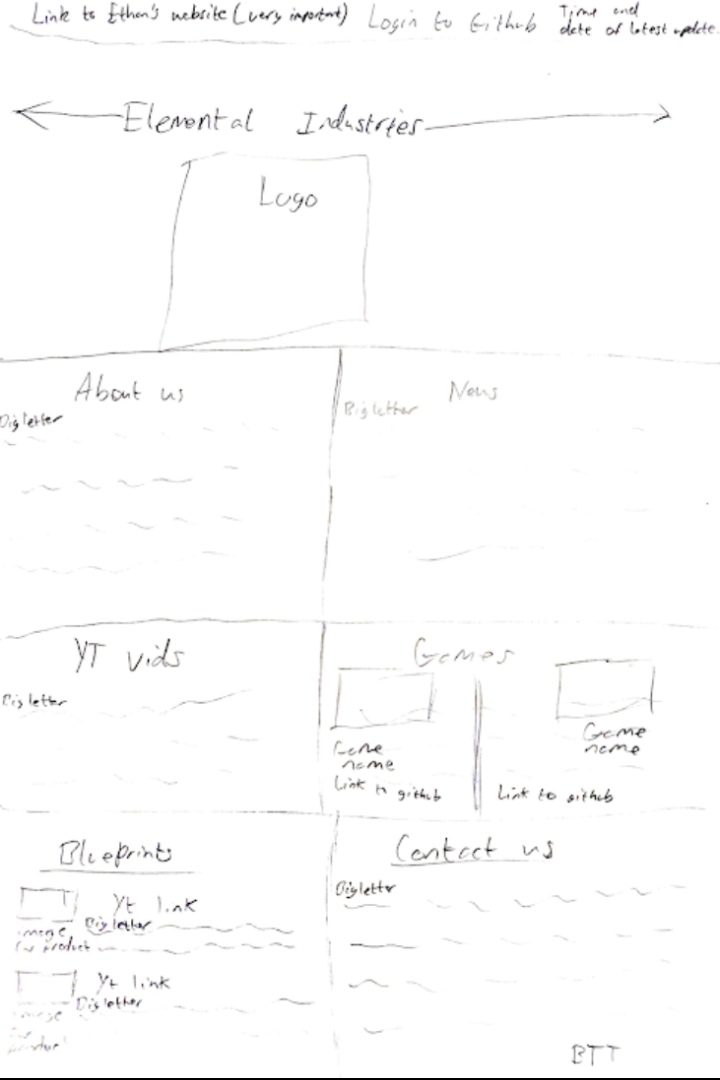 Link to Ethan's website (very important) Login to Github Time and
date of latest update.
Elemental Industries
Logo
About us
Big letter
News
Big letter
YT vids
Big letter
Games
Game
name
Link to github
Game
name
Link to github
Blueprints
Yt link
image Big letter
for product
Yt link
Big letter
image
for
product
Contact us
Big letter
BTT